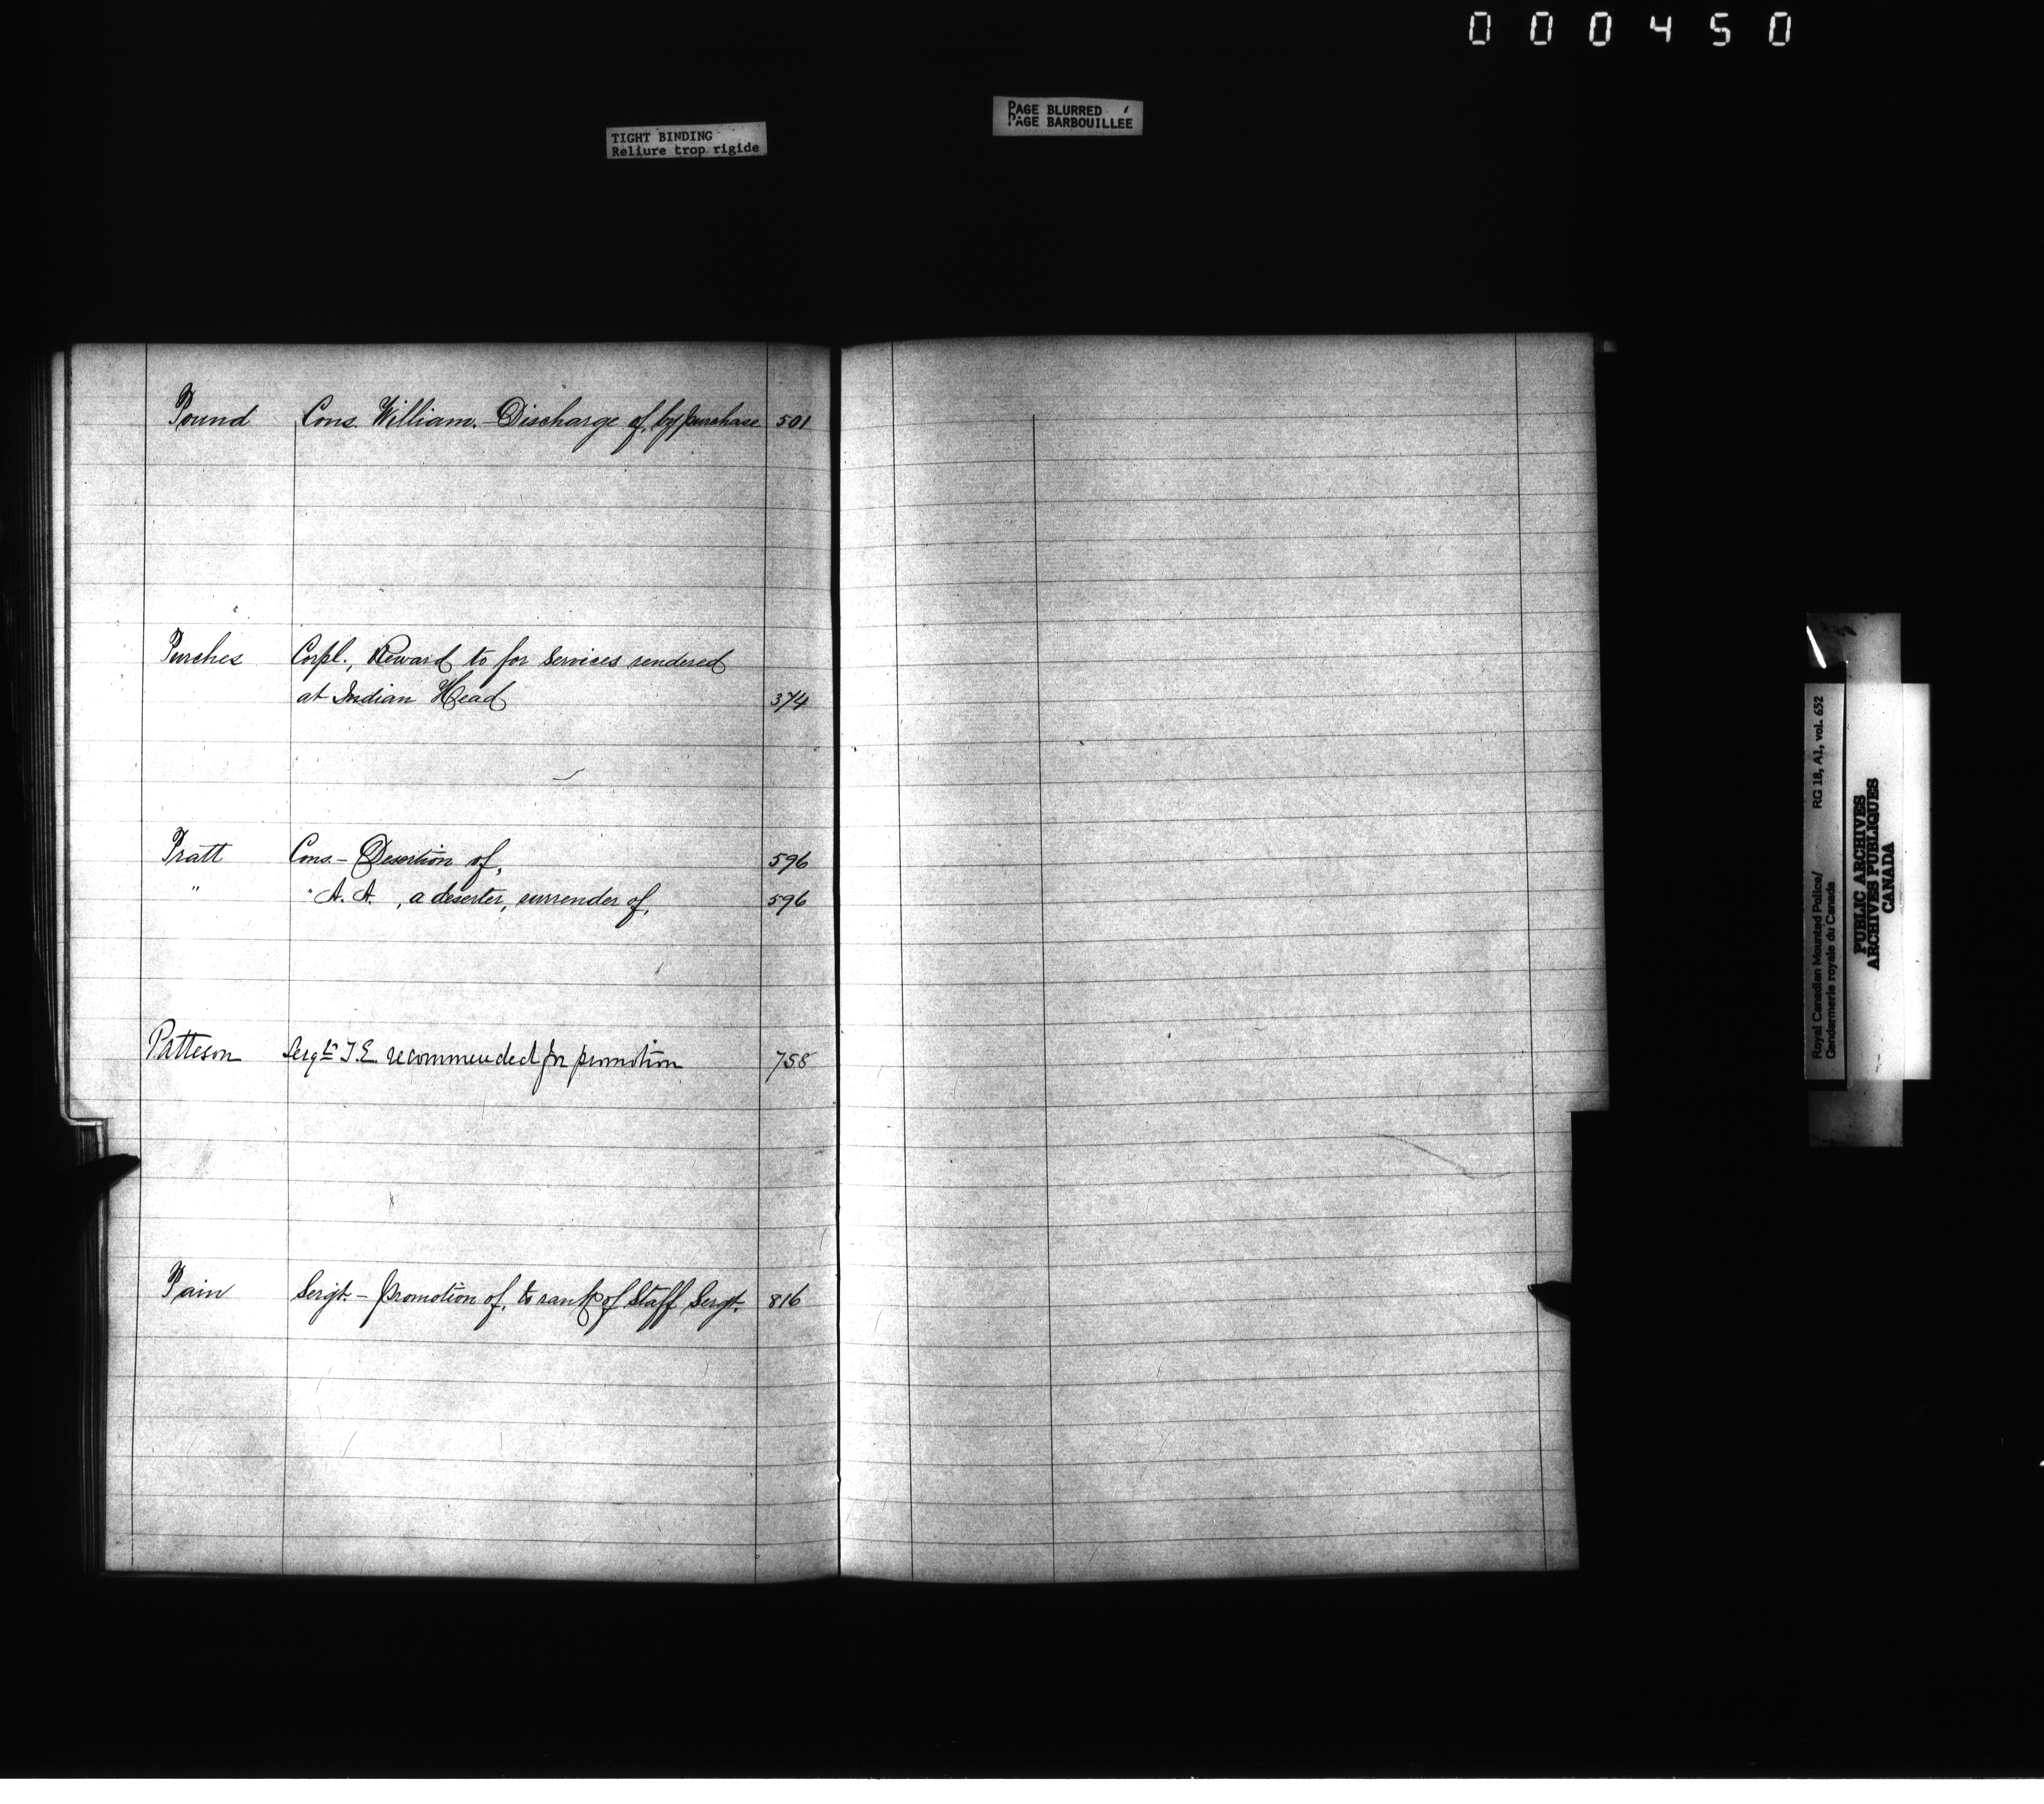 000450
PAGE BLURRED
PAGE BARBOUILLÉE
TIGHT BINDING
Reliure trop rigide
Pound Cons. William. - Discharge of, by purchase 501
Purches Corpl., Reward to for services rendered
at Indian Head 374
Pratt Cons. - Desertion of, 596
" " A. A. , a deserter, surrender of, 596
Patteson Sergt. T.E. recommended for promotion 758
Pain Sergt. - promotion of, to rank of Staff Sergt. 816
Royal Canadian Mounted Police/ RG 18, A1, vol. 652
Gendarmerie royale du Canada
PUBLIC ARCHIVES
ARCHIVES PUBLIQUES
CANADA